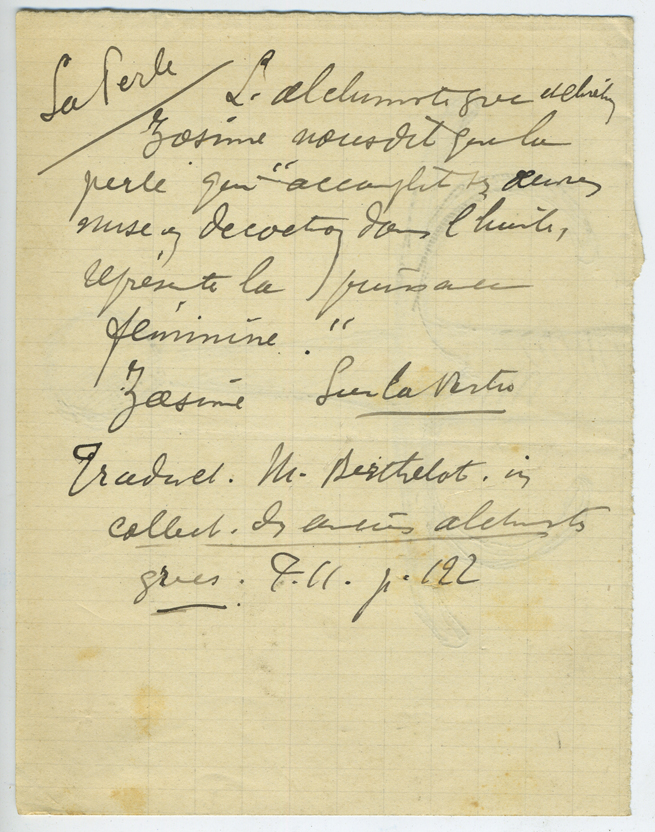 La Perle
L'alchimiste grec et chrétien
Zosime nous dit que la
perle qui "accomplit les œuvres
mise en décoction dans l'huile,
représente la puissance
féminine."
Zosime Sur la Vertu
Traduct. M. Berthelot. in
collect. des anciens alchimistes
grecs. T. II. p. 192